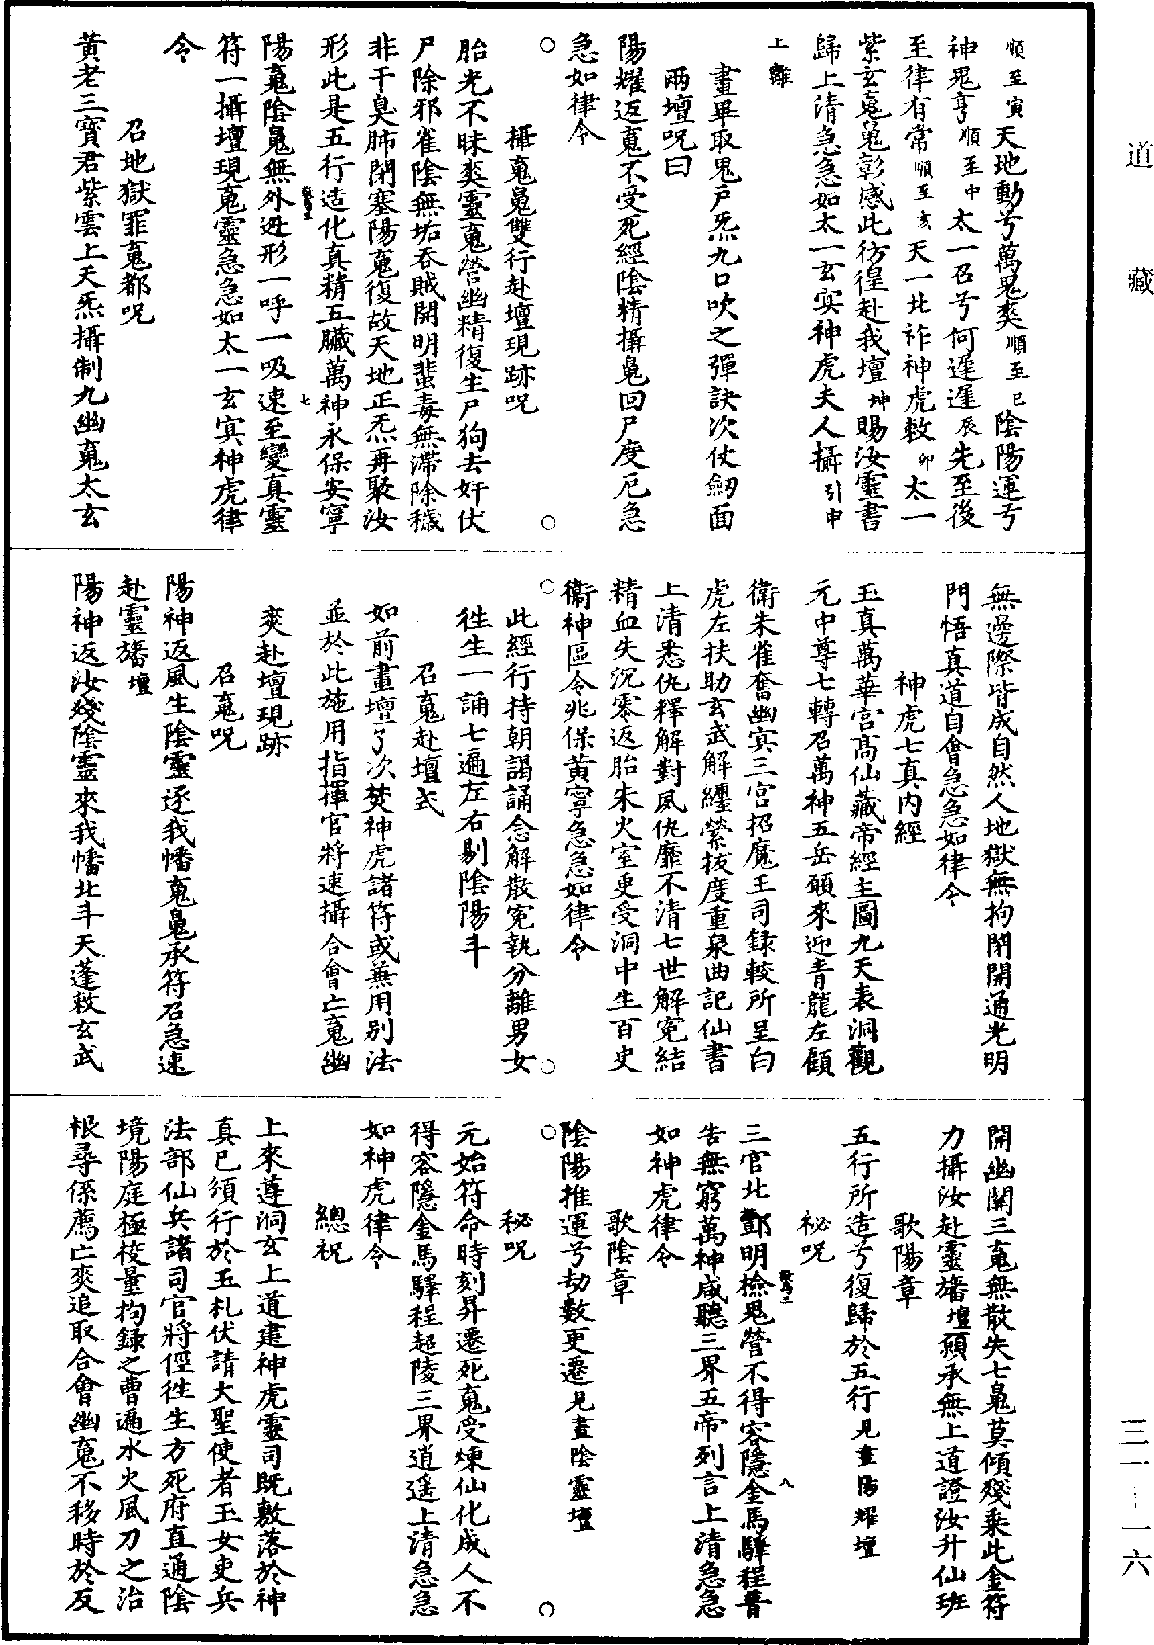 道藏
三一—一六
順至寅天地動兮萬鬼奭順至巳陰陽運兮
神鬼亨順至申太一召兮何遲遲辰先至後
至律有常順至亥天一北祚神虎敕卯太一
紫玄䰟鬼彰感此彷徨赴我壇坤賜汝靈書
歸上清急急如太一玄冥神虎夫人攝引申
上離
畫畢取鬼戶炁九口吹之彈訣次仗劒面
兩壇呪曰
陽耀返䰟不受死經陰精攝鬼回尸度厄急
急如律令
攝䰟鬼雙行赴壇現跡呪
胎光不昧爽靈䰟營幽精復生尸狗去奸伏
尸除邪雀陰無垢吞賊開明蜚毒無滯除穢
非干臭肺閉塞陽䰟復故天地正炁再聚汝
形此是五行造化真精五臟萬神永保安寧
陽䰟陰鬼無外逃形一呼一吸速至變真靈
符一攝壇現䰟靈急急如太一玄冥神虎律
令
召地獄罪䰟都呪
黄老三寶君紫雲上天炁攝制九幽䰟太玄
無邊際皆成自然人地獄無拘閉開通光明
門悟真道自會急急如律令
神虎七真内經
玉真萬華宫高仙藏帝經主圖九天表洞觀
元中尊七轉召萬神五岳願來迎青龍左顧
衛朱雀奮幽冥三宫招魔王司録較所呈白
虎左扶助玄武解纏縈抜度重泉曲記仙書
上清悉仇釋解對風仇靡不清七世解寃結
精血失沉零返胎朱火室更受洞中生百史
衛神區令兆保黄寧急急如律令
此經行持朝謁誦念解散寃執分離男女
徃生一誦七遍左右剔陰陽斗
召䰟赴壇式
如前畫壇了次焚神虎諸符或兼用别法
並於此施用指揮官將速攝合會亡䰟幽
爽赴壇現跡
召䰟呪
陽神返風生陰靈逐我幡䰟鬼承符召急速
赴靈旛壇
陽神返汝殘陰靈來我幡北斗天蓬敕玄武
開幽關三䰟無散失七鬼莫傾殘乗此金符
力攝汝赴靈旛壇願承無上道證汝升仙班
歌陽章
五行所造兮復歸於五行見畫陽耀壇
秘呪
三官北酆明檢鬼營不得容隱金馬驛程普
告無窮萬神咸聽三界五帝列言上清急急
如神虎律令
歌陰章
陰陽推運兮劫數更遷見畫陰靈壇
秘呪
元始符命時刻昇遷死䰟受煉仙化成人不
得容隱金馬驛程超陵三界逍遥上清急急
如神虎律令
總祝
上來遵洞玄上道建神虎靈司既敷落於神
真已須行於玉札伏請大聖使者玉女吏兵
法部仙兵諸司官將俓徃生方死府直通陰
境陽庭極校量拘録之曹遍水火風刀之治
根尋係薦亡爽追取合會幽䰟不移時於反